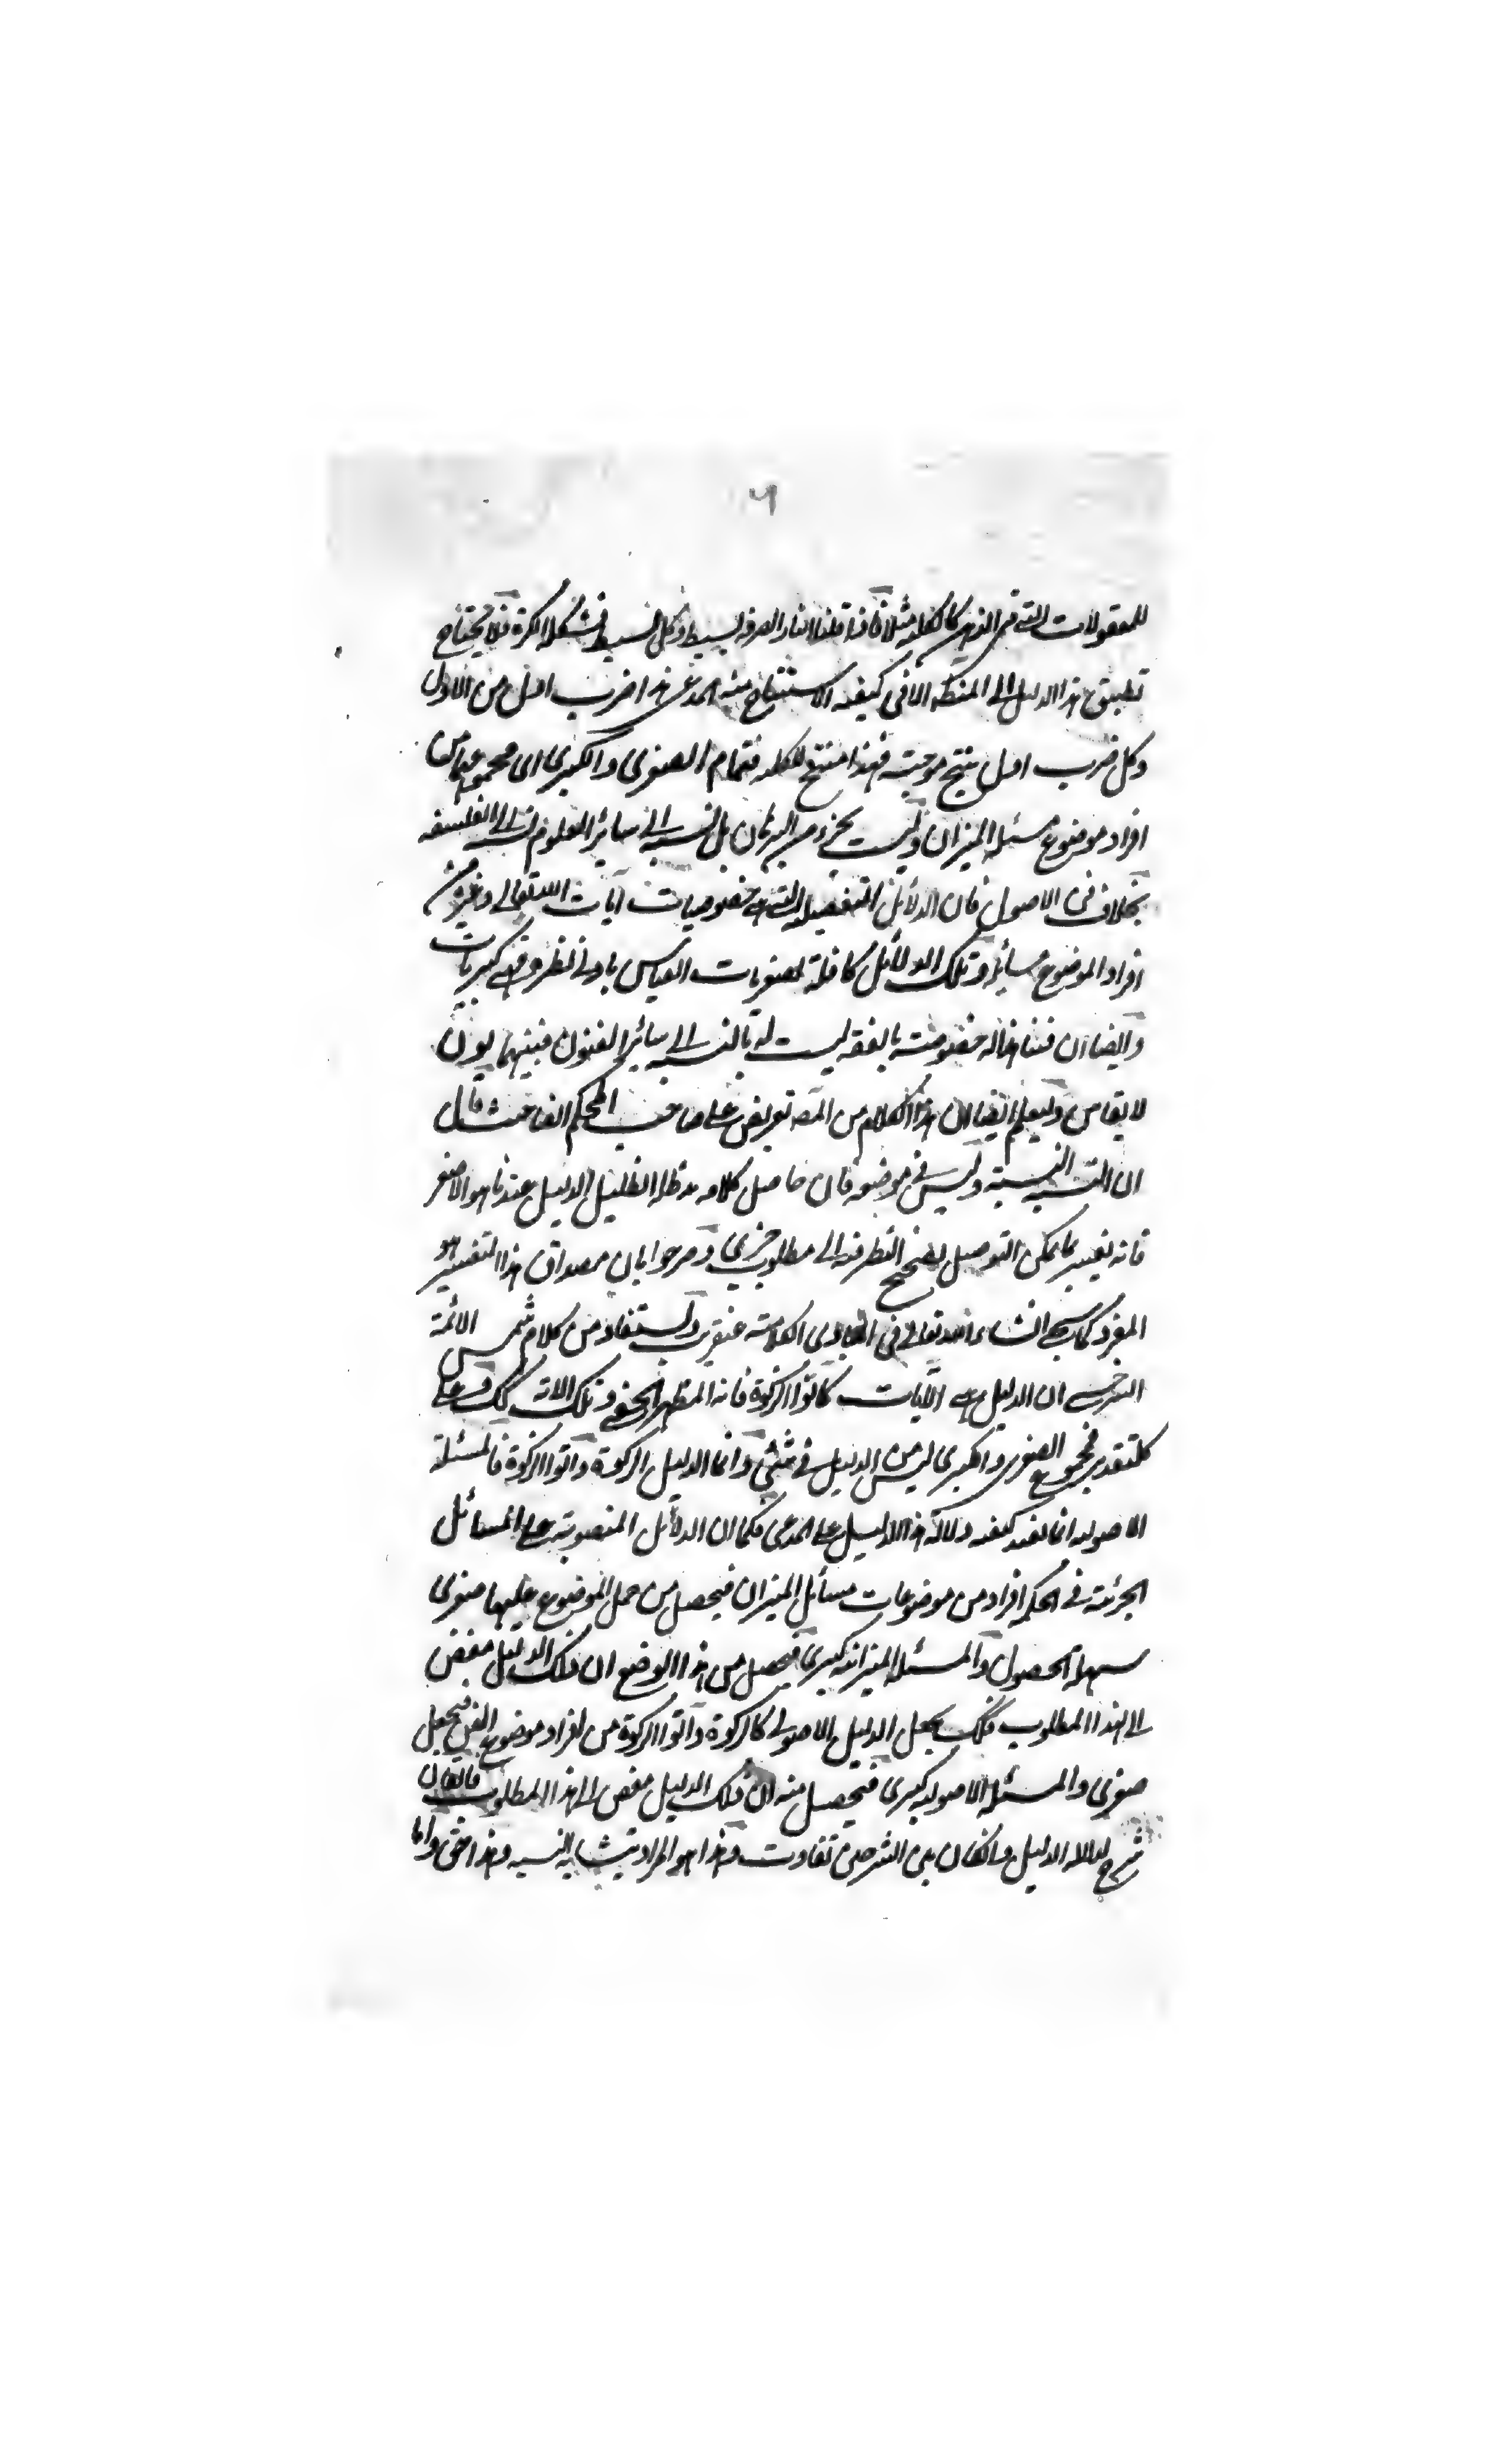 ٦
للمعقولات التي في الذهن كالكلية مثلا فاذا قلنا النار الصرفة بسيط وكل بسيط فشكله الكرة فلا يحتاج
تطبيق هذا الدليل الى المنطقية الا في كيفية الاستنتاج منه المدعى هذا ضرب اول من الاول
وكل ضرب اول ينتج موجبة فهذا منتج للكلية فتمام الصغرى والكبرى اى مجموعهما من
افراد موضوع مسئلة الميزان وليست بجزء من البرهان بل نسبته الى سائر العلوم كنسبته الى الفلسفة
بخلاف فن الاصول فان الدلائل التفصيلية التي هي خصوصيات آيات الله تعالى وغيره من
افراد الموضوع مسائله وتلك الدلائل كافلة لصغريات القياس بادنى نظر وهي كبريات
وايضا ان فننا هذا له خصوصية بالفقه ليست له بالنسبة الى سائر الفنون فبينهما بون
لا يقاس وليعلم ايضا ان هذا الكلام من المصـ تعريض على صاحب المحكم الفاحيث قال
ان النسبة النسبة وليس في موضعه فان حاصل كلامه مد ظله الظليل الدليل عندنا هو الاصغر
فانه يفسر بما يمكن التوصل بصحيح النظر فيه الى مطلوب خبرى وصرحوا بان مصداق هذا التفسير هو
المفرد كما سيجئ انشاء الله تعالى في المبادى الكلامية عنقريب ويستفاد من كلام شمس الائمة
السرخسى ان الدليل هي الآيات كآتوا الزكوة فانه المظهر للحقى وتلك الاته كك وعلى
كلتقدير فمجموع الصغرى والكبرى ليس من الدليل في شئ وانما الدليل الزكوة وآتوا الزكوة فالمسئلة
الاصولية انما تفيد كيفية دلالة هذا الدليل على المدعى فكما ان الدلائل المنصوبة على المسائل
الجزئية في الحكمة افراد من موضوعات مسائل الميزان فيحصل من حمل الموضوع عليها صغرى
سهلة الحصول والمسئلة الميزانية كبرى فيحصل من هذا الوضع ان ذلك الدليل مفض
الى هذا المطلوب فكك يجعل الدليل الاصولى كالزكوة وآتوا الزكوة من افراد موضوع الفن فيجعل
صغرى والمسئلة الاصولية كبرى فيتحصل منه ان ذلك الدليل مفض الى هذا المطلوب فالفان
شرح لدلالة الدليل وان كان بين الشرحين تفاوت وهذا هو المراد بتشابه النسبة وهذا حق واما